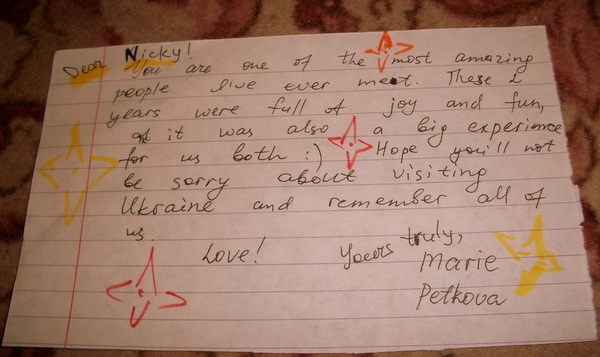 Dear Nicky!
You are one of the most amazing
people I've ever meet. These 2
years were full of joy and fun,
it was also a big experience
for us both :) Hope you'll not
be sorry about visiting
Ukraine and remember all of
us.
Love! Yours truly,
Marie
Petkova